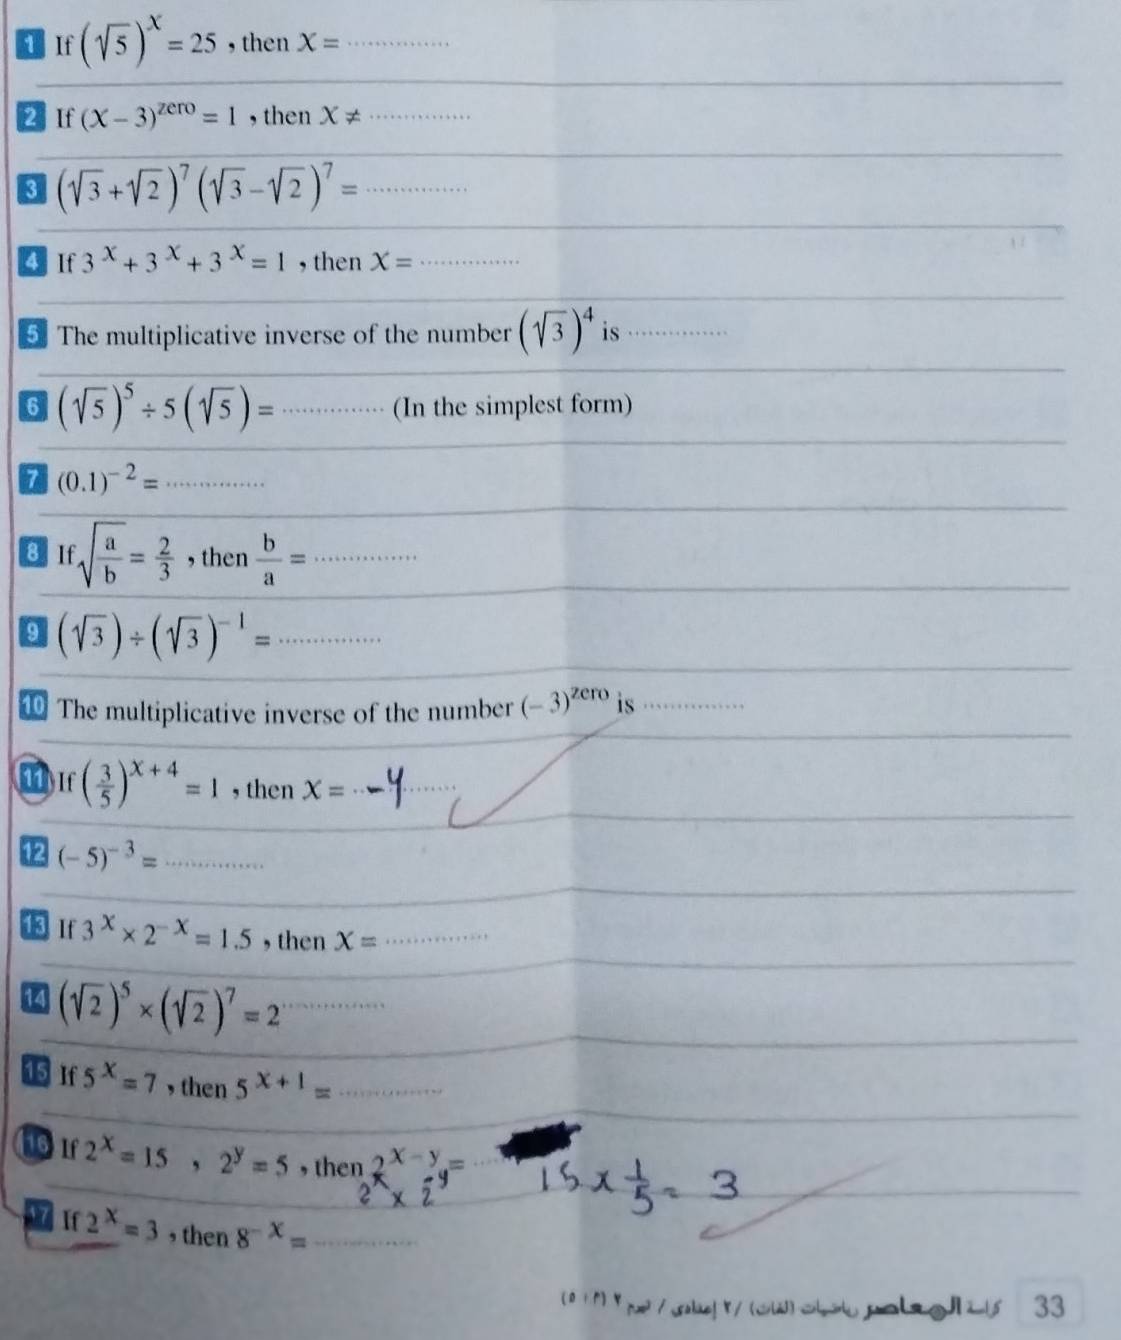 1 If (√5)^x = 25 , then x = ...............
2 If (x – 3)^zero = 1 , then x ≠ ...............
3 (√3 + √2)^7 (√3 – √2)^7 = ...............
4 If 3^x + 3^x + 3^x = 1 , then x = ...............
5 The multiplicative inverse of the number (√3)^4 is ...............
6 (√5)^5 ÷ 5 (√5) = ............... (In the simplest form)
7 (0.1)^–2 = ...............
8 If √(a/b) = 2/3 , then b/a = ...............
9 (√3) ÷ (√3)^–1 = ...............
10 The multiplicative inverse of the number (– 3)^zero is ...............
11 If (3/5)^(x + 4) = 1 , then x = -4
12 (– 5)^–3 = ...............
13 If 3^x × 2^–x = 1.5 , then x = ...............
14 (√2)^5 × (√2)^7 = 2^...............
15 If 5^x = 7 , then 5^(x + 1) = ...............
16 If 2^x = 15 , 2^y = 5 , then 2^(x – y) = ..... 15 × 1/5 = 3
2^x × 2^-y
17 If 2^x = 3 , then 8^–x = ...............
كراسة المعاصر رياضيات (لغات) / ٢ إعدادى / تيرم ٢ (م : ٥) 33